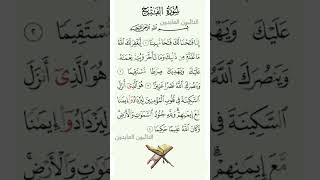 سُورَةُ الفَتْحِ
التائبون العابدون
بِسْمِ ٱللَّهِ ٱلرَّحْمَٰنِ ٱلرَّحِيمِ
إِنَّا فَتَحْنَا لَكَ فَتْحًا مُّبِينًا ١ لِّيَغْفِرَ لَكَ ٱللَّهُ
مَا تَقَدَّمَ مِن ذَنۢبِكَ وَمَا تَأَخَّرَ وَيُتِمَّ نِعْمَتَهُۥ
عَلَيْكَ وَيَهْدِيَكَ صِرَٰطًا مُّسْتَقِيمًا ٢
وَيَنصُرَكَ ٱللَّهُ نَصْرًا عَزِيزًا ٣ هُوَ ٱلَّذِىٓ أَنزَلَ
ٱلسَّكِينَةَ فِى قُلُوبِ ٱلْمُؤْمِنِينَ لِيَزْدَادُوٓا۟ إِيمَٰنًا
مَّعَ إِيمَٰنِهِمْ وَلِلَّهِ جُنُودُ ٱلسَّمَٰوَٰتِ وَٱلْأَرْضِ
وَكَانَ ٱللَّهُ عَلِيمًا حَكِيمًا ٤
التائبون العابدون